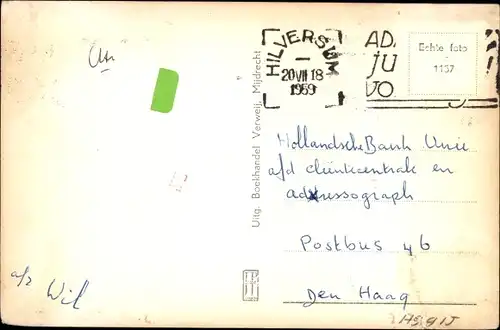 HILVERSUM
20 VII 18
1959
AD.
JU
VO
Echte foto
-
1137
Uitg. Boekhandel Verweij, Mijdrecht
Hollandsche Bank Unie
afd cliëntecentrale en
adressograph
Postbus 46
Den Haag
afz Wil